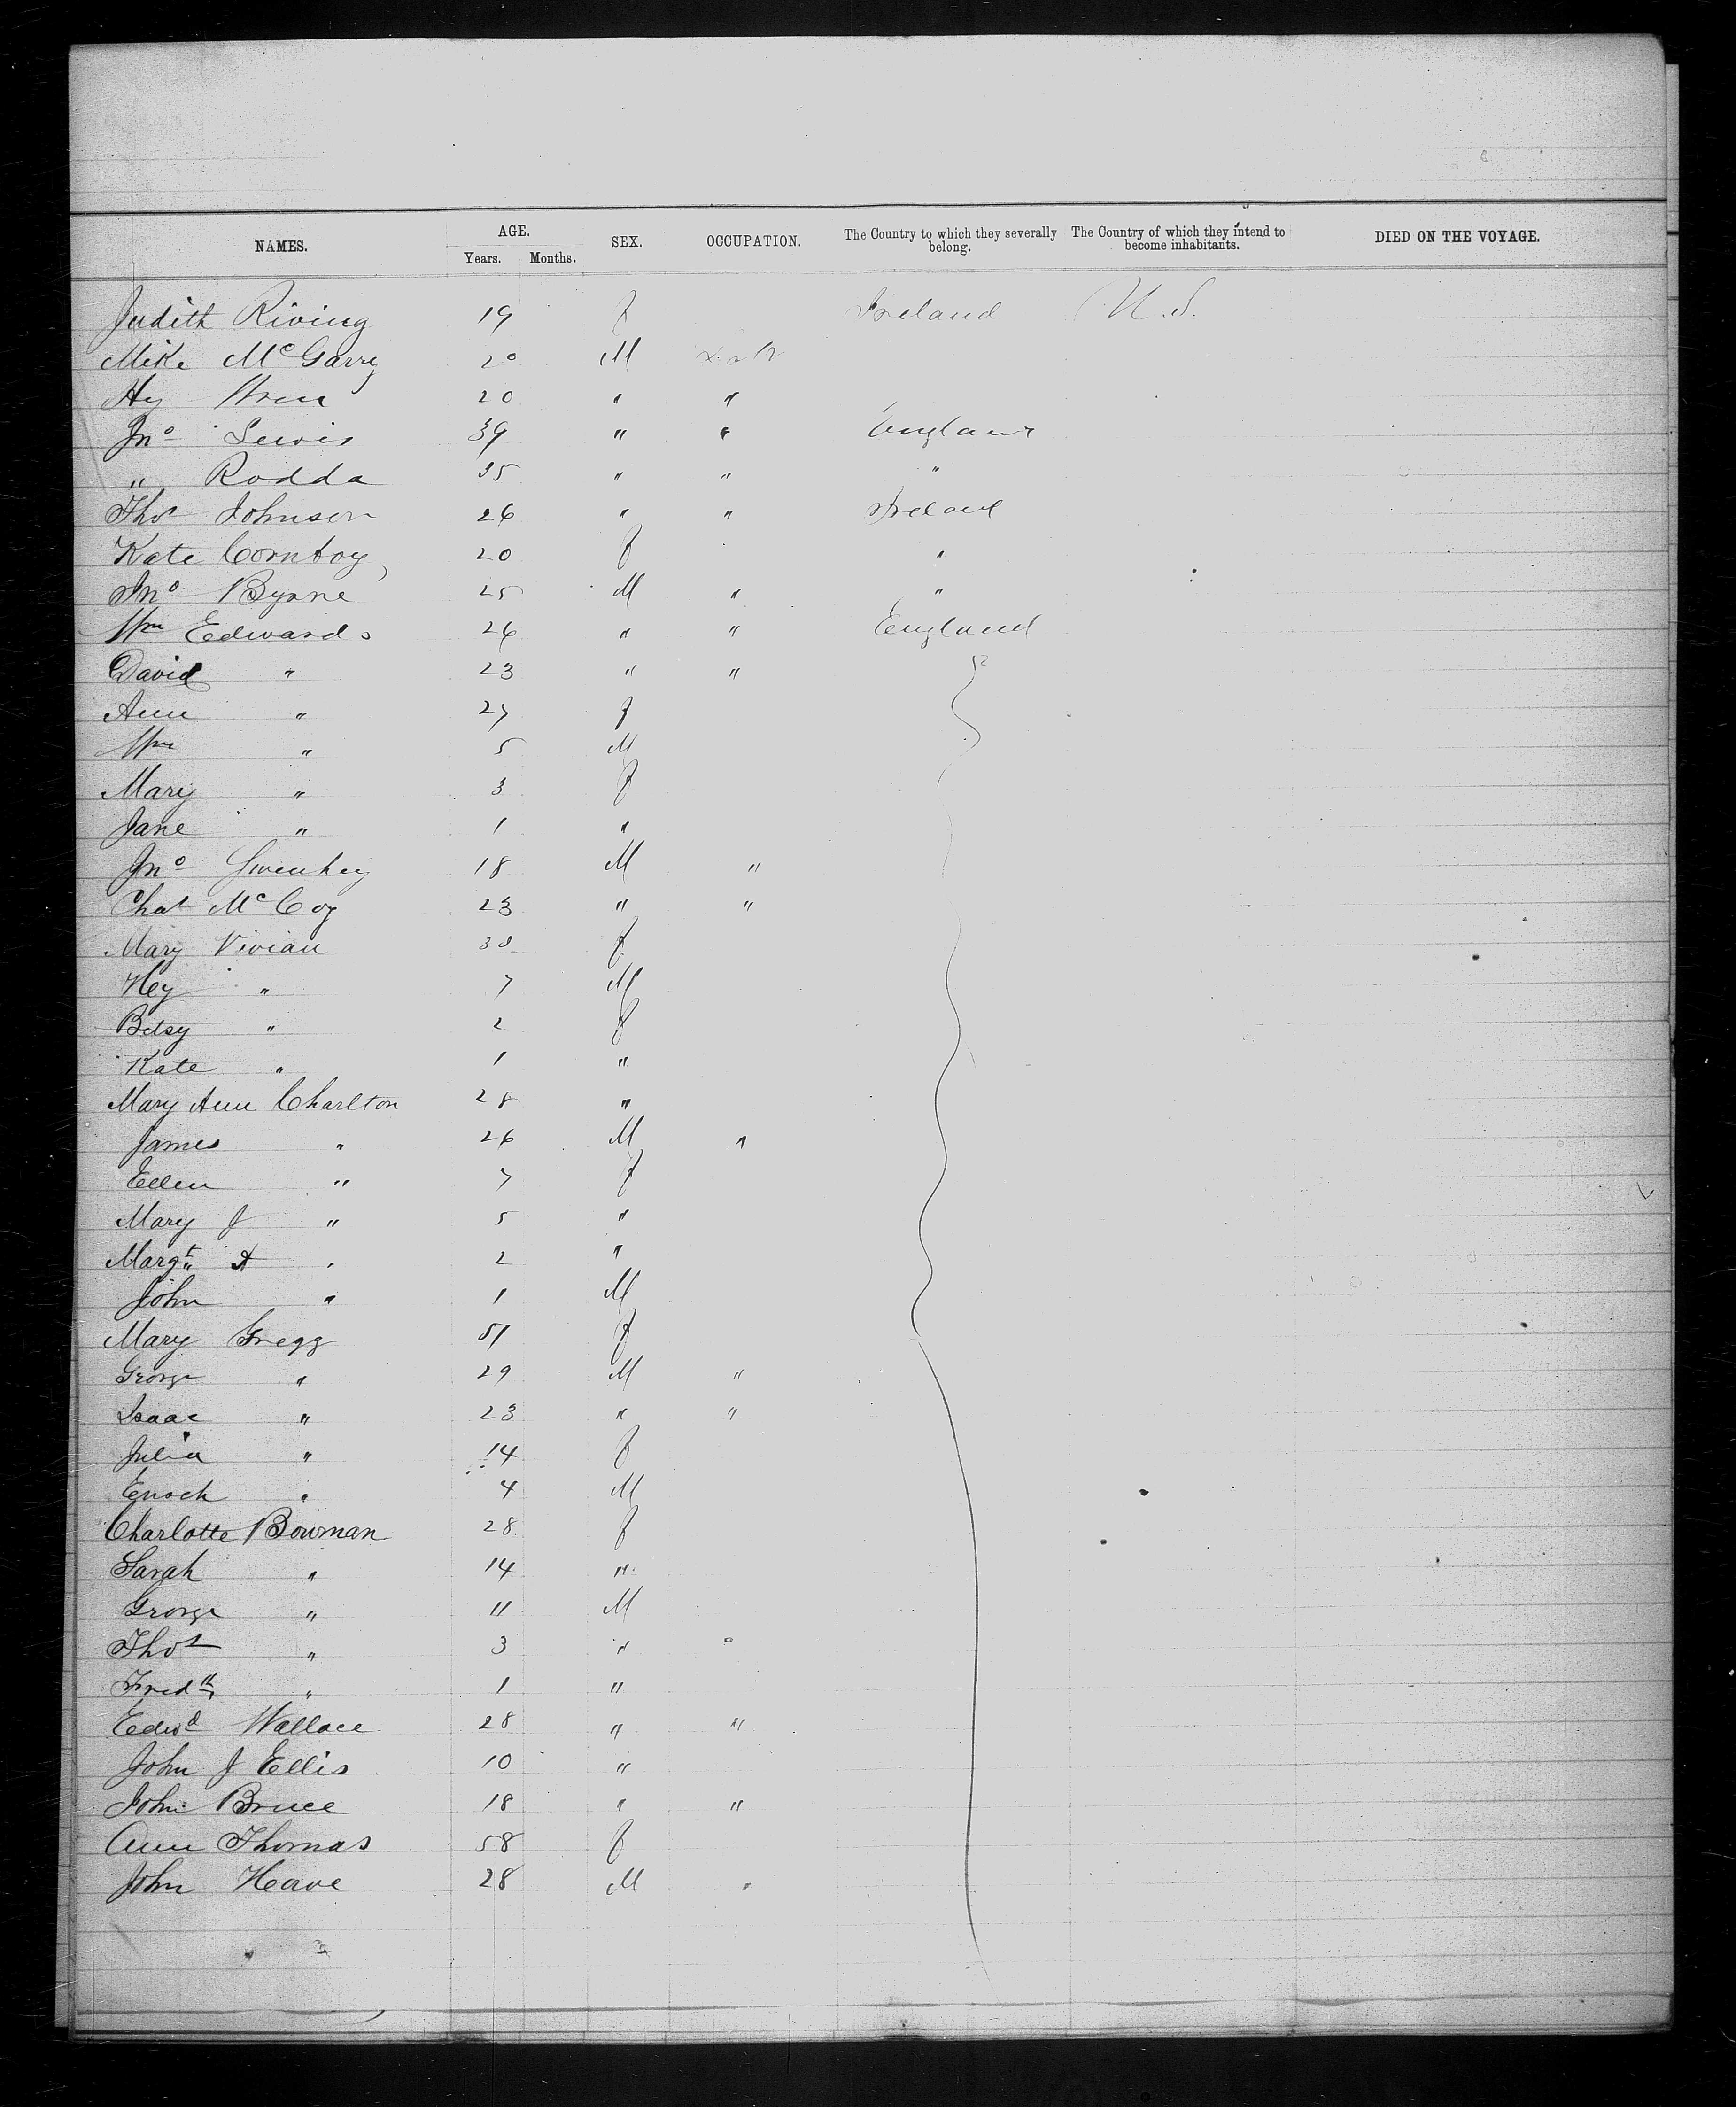 NAMES. AGE. Years. Months. SEX. OCCUPATION. The Country to which they severally belong. The Country of which they intend to become inhabitants. DIED ON THE VOYAGE.
Judith 19 f Ireland U.S.
Mike McGarry 20 M Lab
Hy 20 " "
Jno Lewis 39 " " England
" Rodda 35 " " "
Thos Johnson 26 " " Ireland
Kate 20 f "
Jno Byrne 25 M " "
Wm Edwards 26 " " England
David " 23 " "
Ann " 27 f
Wm " 5 M
Mary " 3 f
Jane " 1 "
Jno 18 M "
Chas McCoy 23 " "
Mary Vivian 30 f
Hey " 7 M
Betsy " 2 f
Kate " 1 "
Mary Ann Charlton 28 "
James " 26 M "
Ellen " 7 f
Mary J " 5 "
Margt A " 2 "
John " 1 M
Mary Gregg 51 f
George " 29 M "
Isaac " 23 " "
Julia " 14 f
Enoch " 4 M
Charlotte Bowman 28 f
Sarah " 14 "
George " 11 M
Thos " 3 "
Fredk " 1 "
Edwd Wallace 28 " "
John J Ellis 10 "
John Bruce 18 " "
Ann Thomas 58 f
John 28 M "